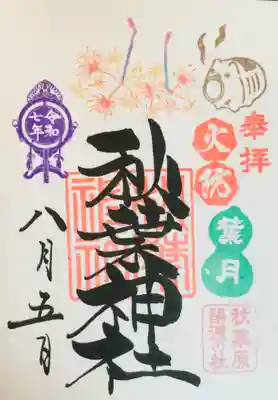 奉拝
火伏
葉月
秋葉原
秋葉神社
令和
七年
八月五日